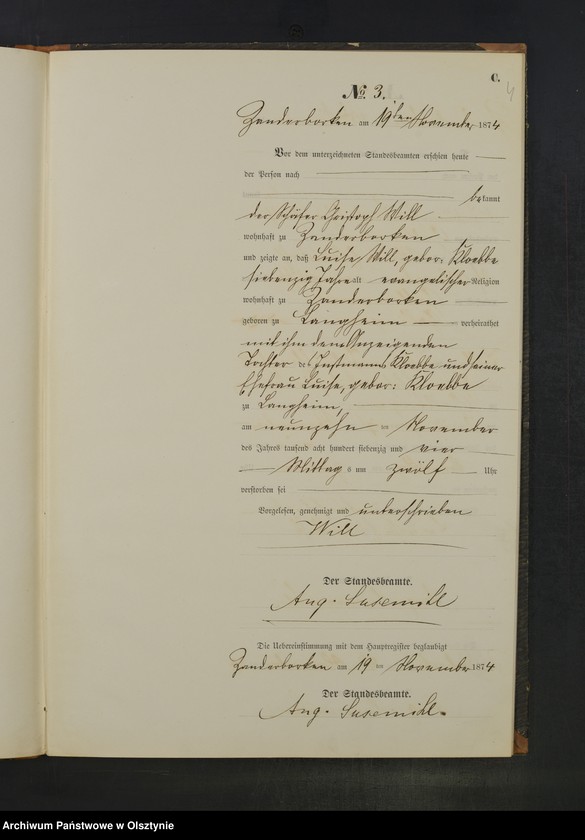 C.
4
№ 3.
Zanderborken am 19ten November 1874
Vor dem unterzeichneten Standesbeamten erschien heute
der Person nach
bekannt
der Schäfer Christoph Will
wohnhaft zu Zanderborken
und zeigte an, daß Luise Will, gebor: Kloebbe
siebenzig Jahre alt evangelischer Religion
wohnhaft zu Zanderborken
geboren zu Langheim verheirathet
mit ihm dem Anzeigenden
Tochter des Instmanns Kloebbe und seiner
Ehefrau Luise, gebor: Kloebbe
zu Langheim,
am neunzehn ten November
des Jahres tausend acht hundert siebenzig und vier
Mittag s um zwölf Uhr
verstorben sei
Vorgelesen, genehmigt und unterschrieben
Will
Der Standesbeamte.
Aug. Susemihl
Die Uebereinstimmung mit dem Hauptregister beglaubigt
Zanderborken am 19 ten November 1874
Der Standesbeamte.
Aug. Susemihl.
Archiwum Państwowe w Olsztynie